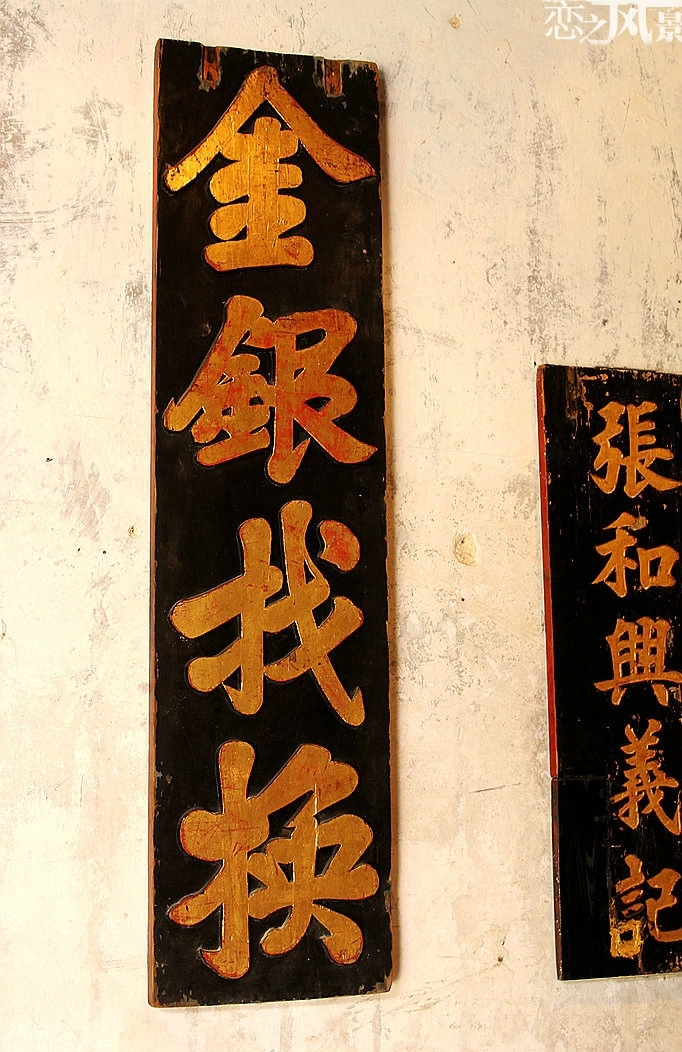 恋之风景
金銀找換
張和興義記